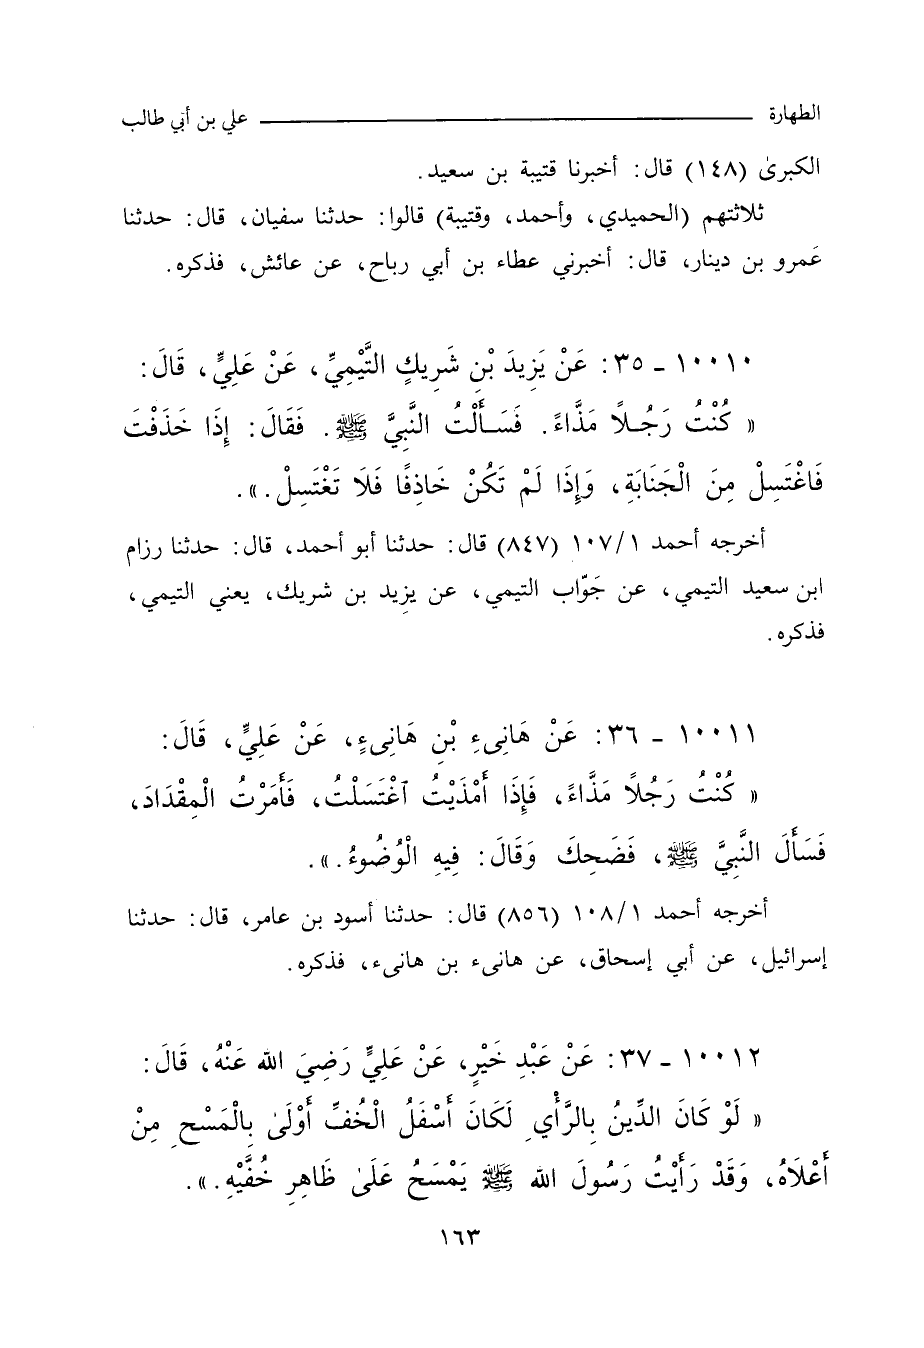 الطهارة ــــــــــــــــــــ علي بن أبي طالب
الكبرىٰ (١٤٨) قال: أخبرنا قتيبة بن سعيد.
ثلاثتهم (الحميدي، وأحمد، وقتيبة) قالوا: حدثنا سفيان، قال: حدثنا
عَمرو بن دينار، قال: أخبرني عطاء بن أبي رباح، عن عائش، فذكره.
١٠٠١٠ ـ ٣٥: عَنْ يَزِيدَ بْنِ شَرِيكٍ التَّيْمِيِّ، عَنْ عَلِيٍّ، قَالَ:
« كُنْتُ رَجُلاً مَذَّاءً. فَسَأَلْتُ النَّبِيَّ ﷺ. فَقَالَ: إِذَا خَذَفْتَ
فَاغْتَسِلْ مِنَ الْجَنَابَةِ، وَإِذَا لَمْ تَكُنْ خَاذِفًا فَلَا تَغْتَسِلْ.».
أخرجه أحمد ١/١٠٧ (٨٤٧) قال: حدثنا أبو أحمد، قال: حدثنا رزام
ابن سعيد التيمي، عن جَوّاب التيمي، عن يزيد بن شريك، يعني التيمي،
فذكره.
١٠٠١١ ـ ٣٦: عَنْ هَانِىءِ بْنِ هَانِىءٍ، عَنْ عَلِيٍّ، قَالَ:
« كُنْتُ رَجُلاً مَذَّاءً، فَإِذَا أَمْذَيْتُ ٱغْتَسَلْتُ، فَأَمَرْتُ الْمِقْدَادَ،
فَسَأَلَ النَّبِيَّ ﷺ، فَضَحِكَ وَقَالَ: فِيهِ الْوُضُوءُ.».
أخرجه أحمد ١/١٠٨ (٨٥٦) قال: حدثنا أسود بن عامر، قال: حدثنا
إسرائيل، عن أبي إسحاق، عن هانىء بن هانىء، فذكره.
١٠٠١٢ ـ ٣٧: عَنْ عَبْدِ خَيْرٍ، عَنْ عَلِيٍّ رَضِيَ الله عَنْهُ، قَالَ:
« لَوْ كَانَ الدِّينُ بِالرَّأْيِ لَكَانَ أَسْفَلُ الْخُفِّ أَوْلَىٰ بِالْمَسْحِ مِنْ
أَعْلَاهُ، وَقَدْ رَأَيْتُ رَسُولَ الله ﷺ يَمْسَحُ عَلَىٰ ظَاهِرِ خُفَّيْهِ.».
١٦٣